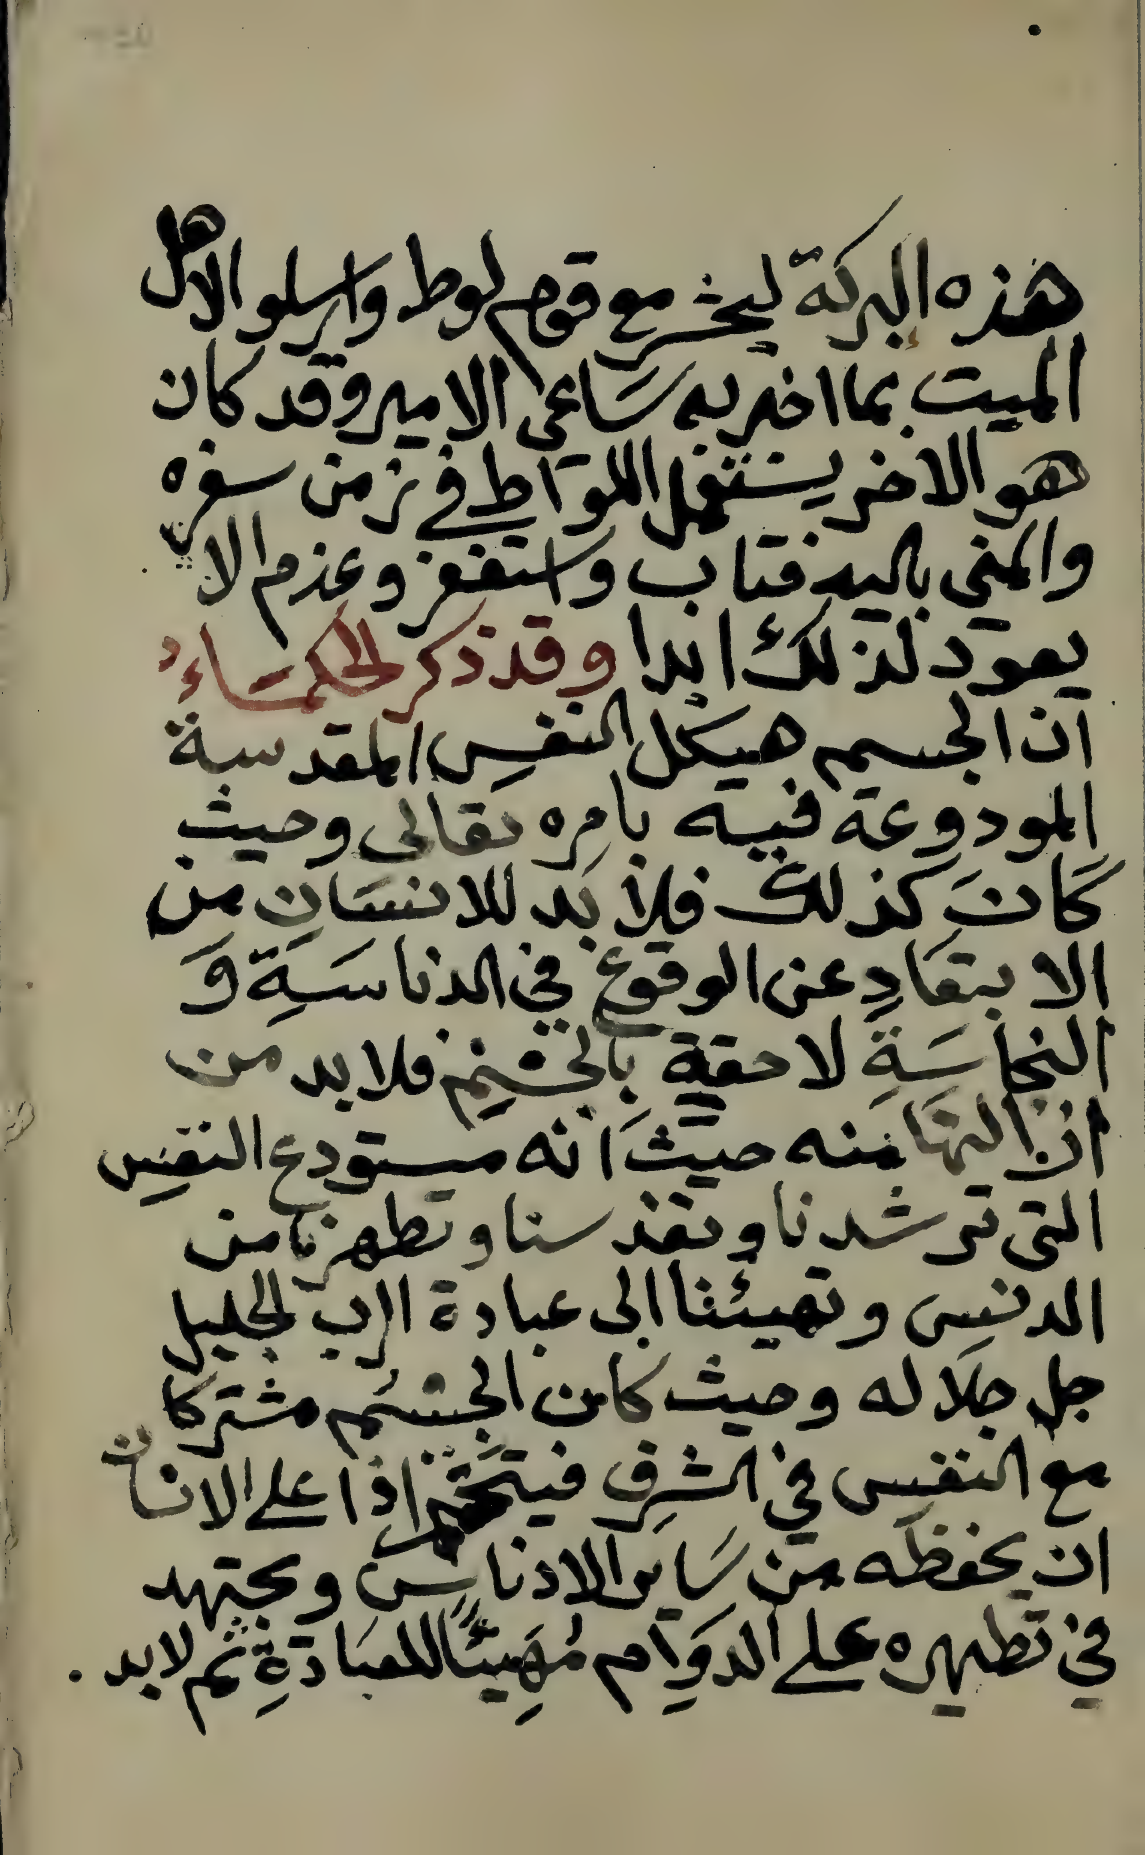 هذه البركة ليحشر مع قوم لوط وارسلو الاهل
الميت بما اخبر به ساعي الامير وقد كان
هو الاخر يستعمل اللواط في زمن سفره
والمني باليد فتاب واستغفر وعزم الا
يعود لذلك ابدا وقد ذكر الحكماء
ان الجسم هيكل النفس المقدسة
المودوعة فيه بامره تعالى وحيث
كَانَ كذلك فلا بد للانسان من
الابتعادِ عن الوقوع في الدناسَةِ وَ
النجاسَةِ لاحقةٍ بالجسمِ فلا بد من
ازالتها منه حيثَ انه مستودع النفسِ
التي ترشدنا وتقدسنا وتطهرنا من
الدنسِ وتهيئنا الى عبادة الرب الجليل
جل جلاله وحيث كان الجسم مشتركا
مع النفس في الشرفِ فيتحتم اذا على الانسان
ان يحفظه من سَاير الادناسِ ويجتهد
في تطهيره على الدوَام مُهَيئًا للعبَادَةِ ثم لابد .